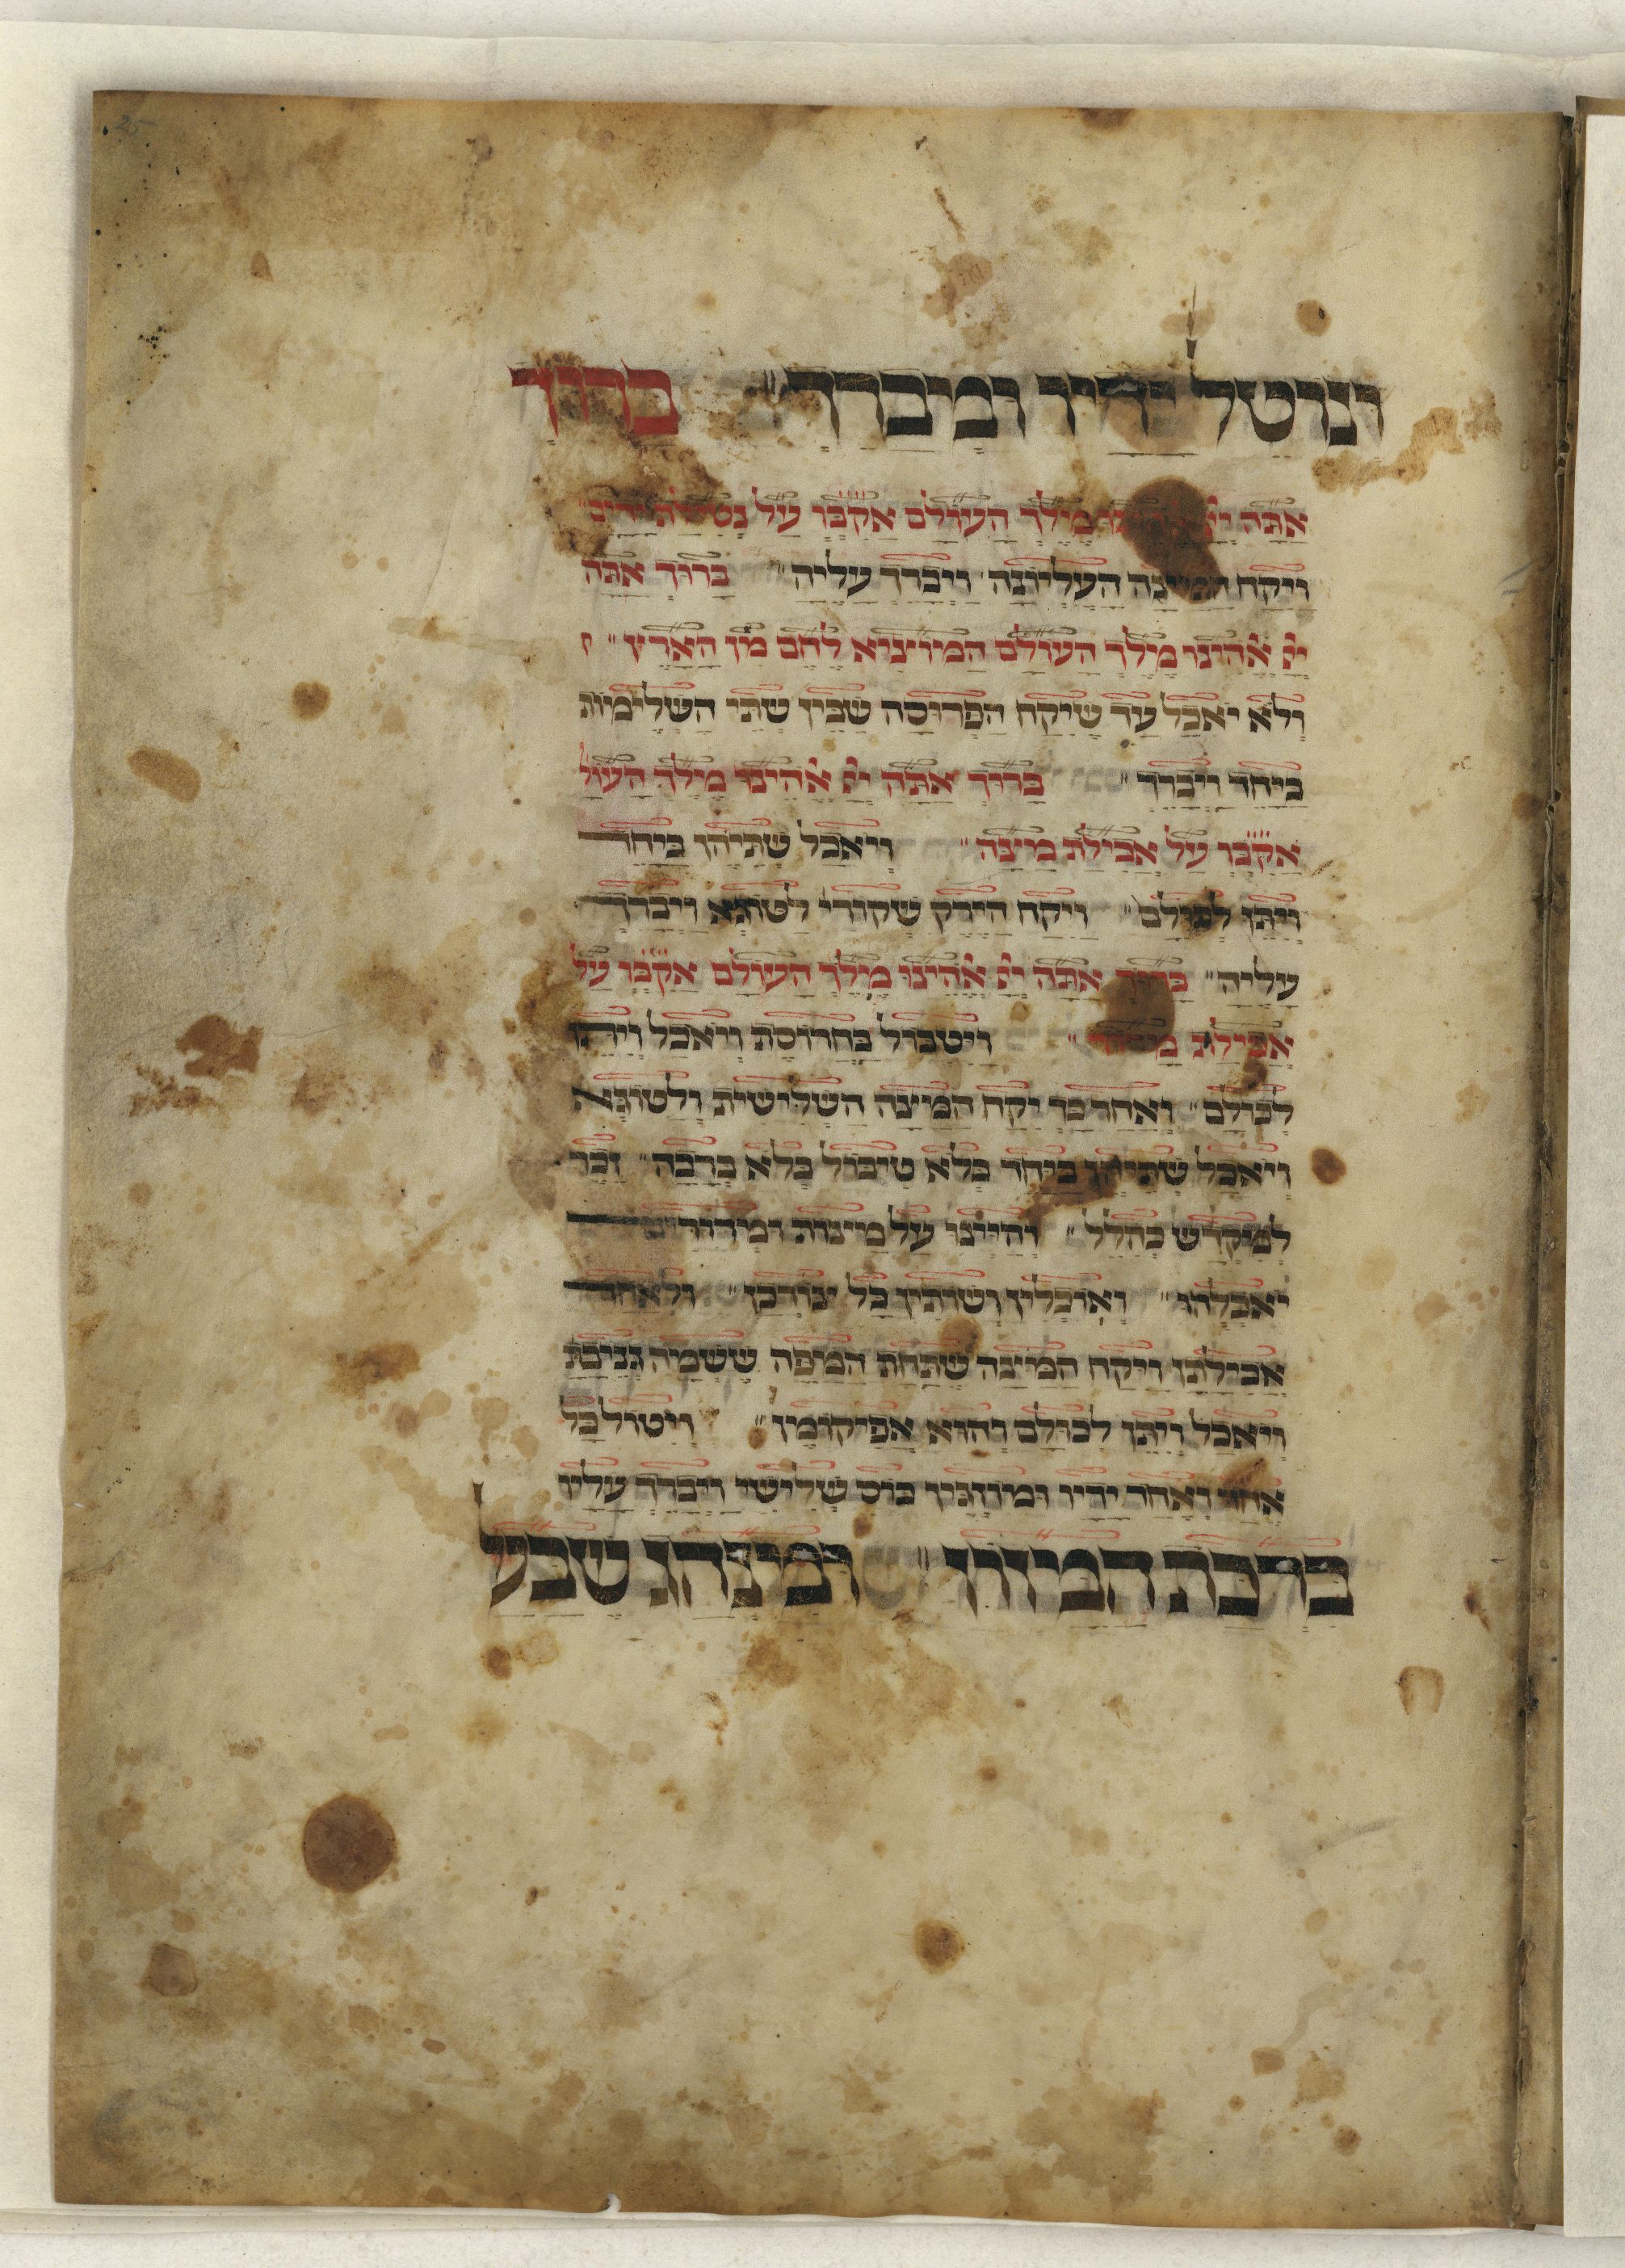 25
ונוטל ידיו ומברך ברוך
אתה יי אלהינו מלך העולם אקב׳ו על נטילת ידים
ויקח המצה העליונה ויברך עליה ברוך אתה
יי אלהינו מלך העולם המוציא לחם מן הארץ
ולא יאכל עד שיקח הפרוסה שבין שתי השלימות
ביחד ויברך ברוך אתה יי אלהינו מלך העול
אקב׳ו על אכילת מצה ויאכל שתיהן ביחד
ויתן לכולם ויקח הירק שקורי׳ לטוגא ויברך
עליה ברוך אתה יי אלהינו מלך העולם אקב׳ו על
אכילת מרור ויטבול בחרוסת ויאכל ויתן
לכולם ואחר כך יקח המצה השלישית ולטוגא
ויאכל שתיהן ביחד בלא טיבול בלא ברכה זכר
למקדש כהלל והיינו על מצות ומרורים
יאכלוהו ואוכלין ושותין כל צורכן ולאחר
אכילתן ויקח המצה שתחת המפה ששמה גניבת
ויאכל ויתן לכולם והוא אפיקומין ויטול כל
אחד ואחד ידיו ומוזגין כוס שלישי ויברך עליו
ברכת המזון